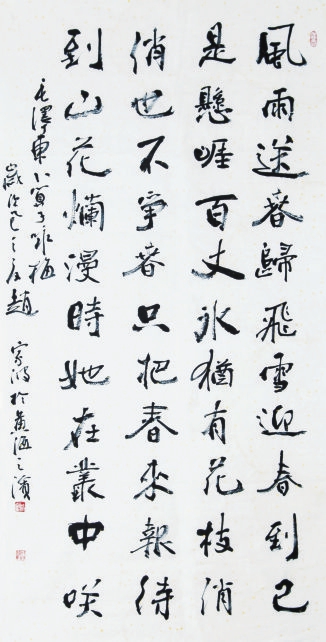 風雨送春歸飛雪迎春到已
是懸崖百丈冰猶有花枝俏
俏也不爭春只把春來報待
到山花爛漫時她在叢中咲
毛澤東卜算子咏梅
歲次巳之趙於黃海之濱